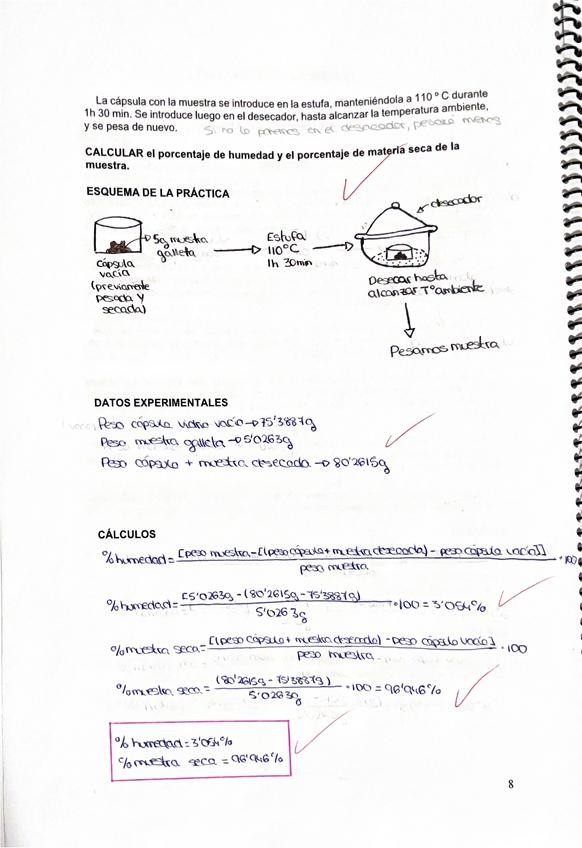 La cápsula con la muestra se introduce en la estufa, manteniéndola a 110 º C durante
1h 30 min. Se introduce luego en el desecador, hasta alcanzar la temperatura ambiente,
y se pesa de nuevo. Si no lo ponemos en el desecador, pesará menos
CALCULAR el porcentaje de humedad y el porcentaje de materia seca de la
muestra.
ESQUEMA DE LA PRÁCTICA
desecador
5g muestra
galleta
cápsula
vacía
(previamente
pesada y
secada)
Estufa
110ºC
1h 30min
Desecar hasta
alcanzar Tª ambiente
Pesamos muestra
DATOS EXPERIMENTALES
Peso cápsula vidrio vacío → 75'3887g
Peso muestra galleta → 5'0263g
Peso cápsula + muestra desecada → 80'2615g
CÁLCULOS
% humedad = [peso muestra - [(peso cápsula + muestra desecada) - peso cápsula vacía]] / peso muestra · 100
% humedad = [5'0263g - (80'2615g - 75'3887g) / 5'0263g · 100 = 3'054%
% muestra seca = [(peso cápsula + muestra desecada) - peso cápsula vacía] / peso muestra · 100
% muestra seca = (80'2615g - 75'3887g) / 5'0263g · 100 = 96'946%
% humedad = 3'054%
% muestra seca = 96'946%
8